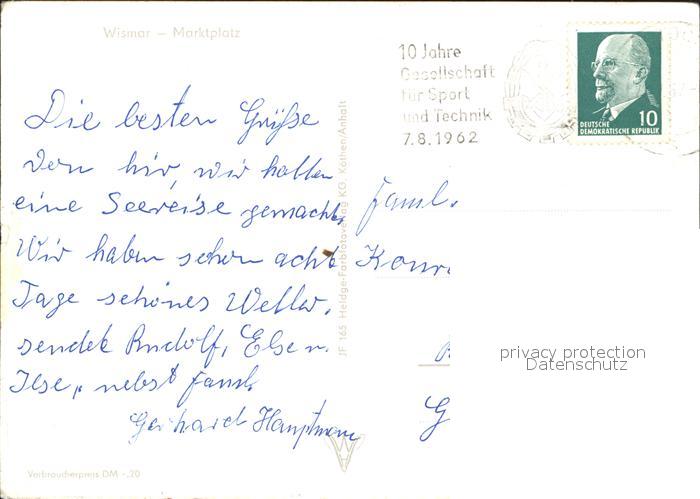 Wismar – Marktplatz
10 Jahre
Gesellschaft
für Sport
und Technik
7.8.1962
10
DEUTSCHE
DEMOKRATISCHE REPUBLIK
Die besten Grüße
von hir, wir hatten
eine Seereise gemacht,
Wir haben schon acht
Tage schönes Wetter,
sendet Rudolf, Else u.
Ilse, nebst Faml.
Gerhard Hauptmann
Faml.
Konr
G
JF 165 Heldge-Farbfotoverlag KG. Köthen/Anhalt
privacy protection
Datenschutz
Verbraucherpreis DM -,20